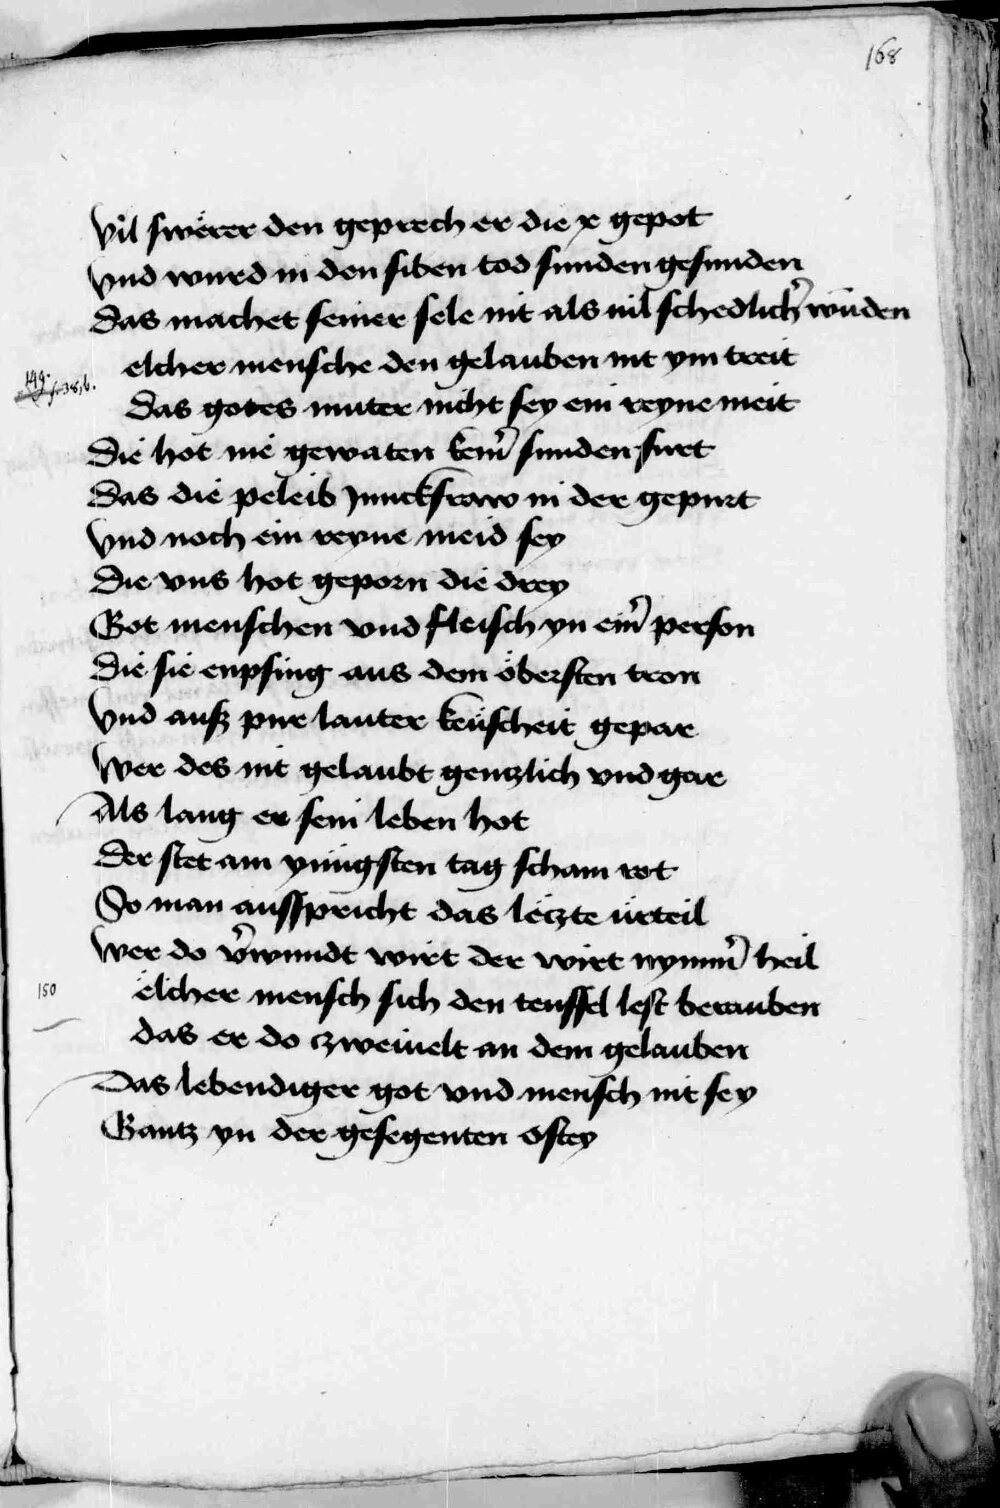 168
Vil swerer den geprech er die x gepot
Vnd wurd in den siben tod sunden gefunden
Das machet seiner sele nit als vil schedlichˀ wunden
elcher mensche den gelauben nit ym treit
149.
f. 38, b.
Das gotes muter nicht sey ein reyne meit
Die hot nie gewaten keinˀ sunden furt
Das die peleib Junckfraw in der gepurt
Vnd noch ein reyne meid sey
Die vns hot geporn die drey
Got menschen vnd fleisch yn einˀ person
Die sie enpfing aus dem öbersten tron
Vnd auß pur lauter keuscheit gepar
Wer des nit gelaubt gentzlich vnd gar
Als lang er sein leben hot
Der stet am yungsten tag scham rot
So man ausspricht das letzte urteil
Wer do vˀwundt wirt der wirt nymmˀ heil
150
elcher mensch sich den teuffel lest berauben
das er do zweiuelt an dem gelauben
Das lebendiger got vnd mensch nit sey
Gantz yn der gesegenten ostey